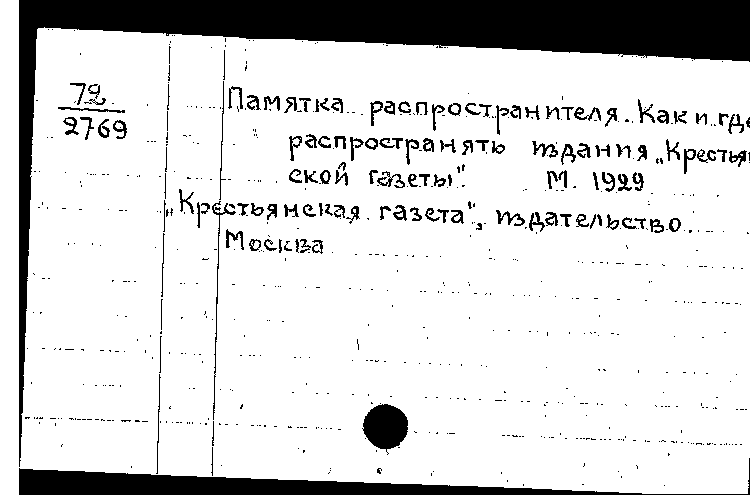 72
2769
Памятка распространителя. Как и где
распространять издания „Крестьян
ской газеты". М. 1929
„Крестьянская газета", издательство.
Москва